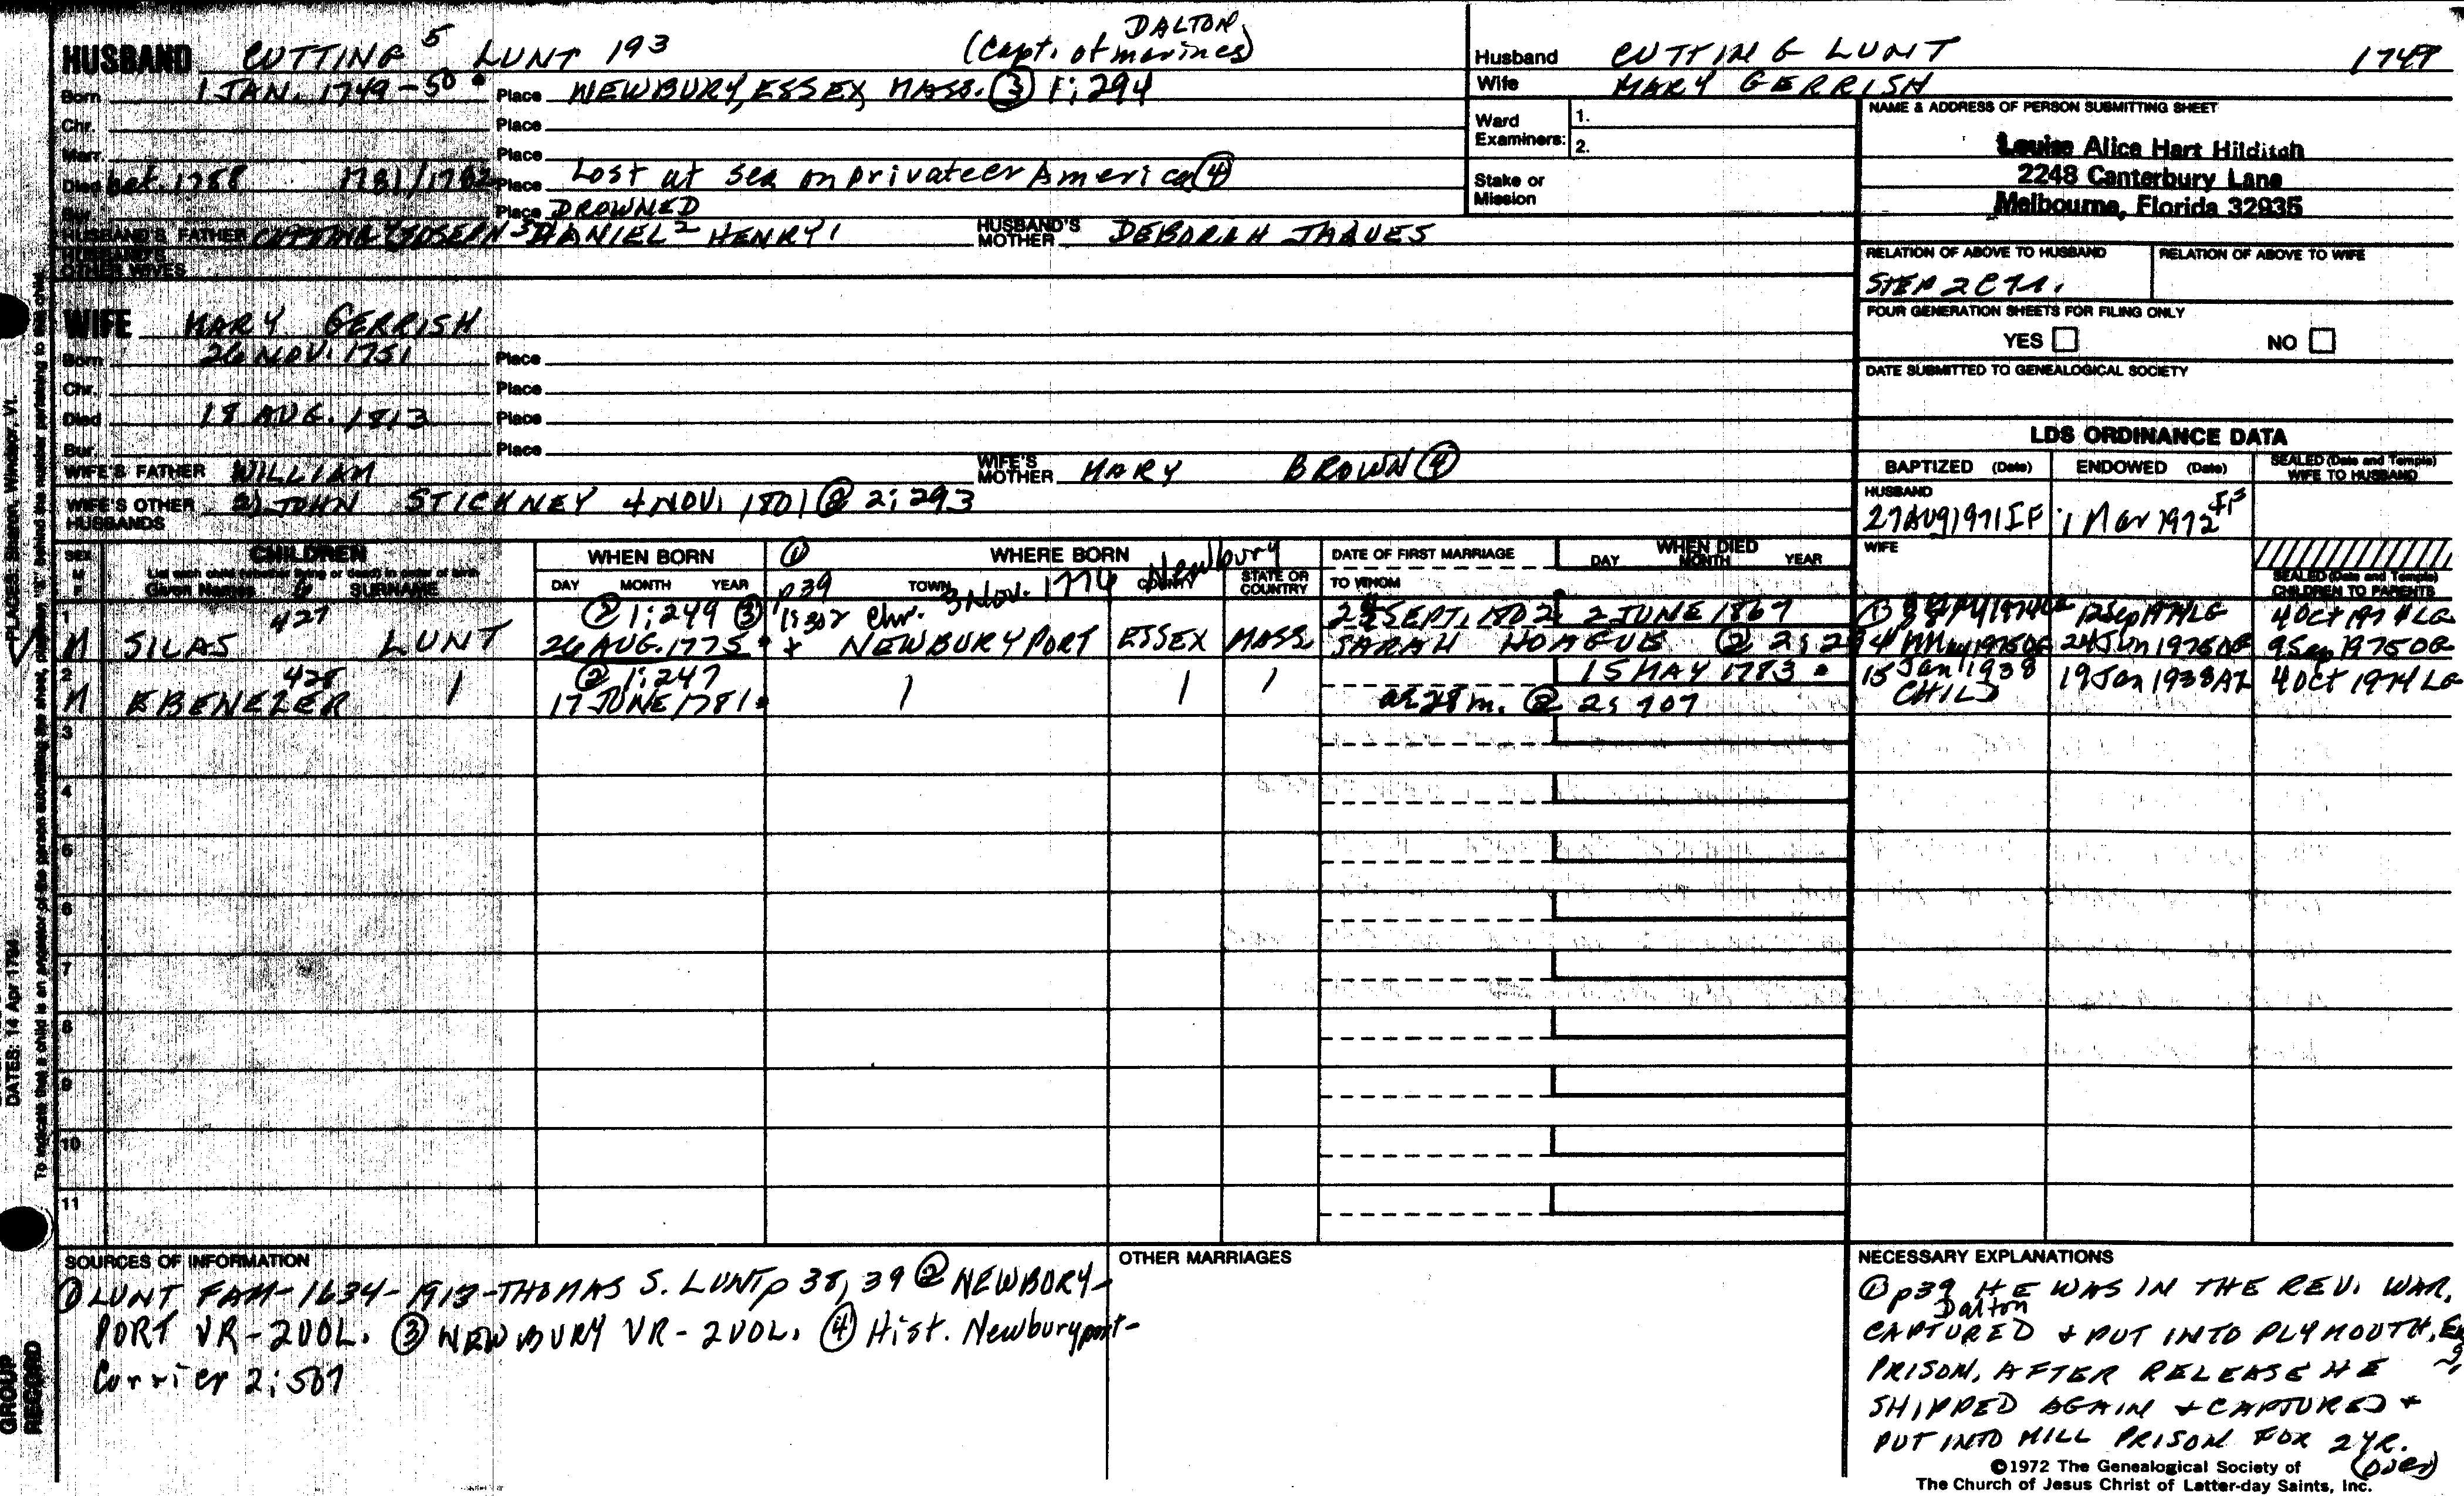 HUSBAND CUTTING 5 LUNT 193 (Capt. of marines) DALTON
Born 1 JAN. 1749-50 Place NEWBURY, ESSEX, MASS. ③ 1:294
Chr. Place
Marr. Place
Died bet. 1788 1781/1782 Place Lost at sea on privateer America ④
Bur. Place DROWNED
HUSBAND'S FATHER JOSEPH 3 DANIEL 2 HENRY 1 HUSBAND'S MOTHER DEBORAH JAQUES
HUSBAND'S OTHER WIVES
WIFE MARY GERRISH
Born 26 NOV. 1751 Place
Chr. Place
Died 18 AUG. 1813 Place
Bur. Place
WIFE'S FATHER WILLIAM WIFE'S MOTHER MARY BROWN ④
WIFE'S OTHER HUSBANDS 2) JOHN STICKNEY 4 NOV. 1801 ② 2:293
Husband CUTTING LUNT 1749
Wife MARY GERRISH
Ward Examiners: 1.
2.
Stake or Mission
NAME & ADDRESS OF PERSON SUBMITTING SHEET
Louise Alice Hart Hilditch
2248 Canterbury Lane
Melbourne, Florida 32935
RELATION OF ABOVE TO HUSBAND RELATION OF ABOVE TO WIFE
STEP 2C
FOUR GENERATION SHEETS FOR FILING ONLY
YES NO
DATE SUBMITTED TO GENEALOGICAL SOCIETY
LDS ORDINANCE DATA
BAPTIZED (Date) ENDOWED (Date) SEALED (Date and Temple) WIFE TO HUSBAND
HUSBAND
27 AUG 1971 IF 1 Mar 1972 IF
WIFE
SEALED (Date and Temple) CHILDREN TO PARENTS
SEX M F
CHILDREN
List each child (whether living or dead) in order of birth
Given Names 6 SURNAME
WHEN BORN
DAY MONTH YEAR
① p39 WHERE BORN
TOWN COUNTY STATE OR COUNTRY
DATE OF FIRST MARRIAGE
TO WHOM
WHEN DIED
DAY MONTH YEAR
1 427 ② 1:249 ③ 1:302 Chr. 3 Nov. 1776 Newbury SEPT. 1802 2 JUNE 1867 12 Sep 1974 LG 4 Oct 1974 LG
M SILAS LUNT 26 AUG. 1775 NEWBURYPORT ESSEX MASS SARAH ② 24 Jun 1975 9 Sep 1975
2 428 ② 1:247 15 MAY 1783 15 Jan 1938 19 Jan 1938 AZ 4 Oct 1974 LG
M EBENEZER 17 JUNE 1781 ae 28 m. ② 2: 707 CHILD
3
4
5
6
7
8
9
10
11
SOURCES OF INFORMATION
① LUNT FAM-1634-1913-THOMAS S. LUNT p 38, 39 ② NEWBURY-
PORT VR-2VOL. ③ NEWBURY VR-2VOL. ④ Hist. Newburyport-
Currier 2:507
OTHER MARRIAGES
NECESSARY EXPLANATIONS
① p39 HE WAS IN THE REV. WAR,
Dalton
CAPTURED + PUT INTO PLYMOUTH, Eng
PRISON, AFTER RELEASE HE
SHIPPED AGAIN + CAPTURED +
PUT INTO MILL PRISON FOR 2 YR.
(over)
©1972 The Genealogical Society of
The Church of Jesus Christ of Latter-day Saints, Inc.
PLACES: Sharon, Windsor, Vt.
DATES: 14 Apr 1794
To indicate that a child is an ancestor of the person submitting the sheet, place an "X" behind the number pertaining to that child.
GROUP
RECORD